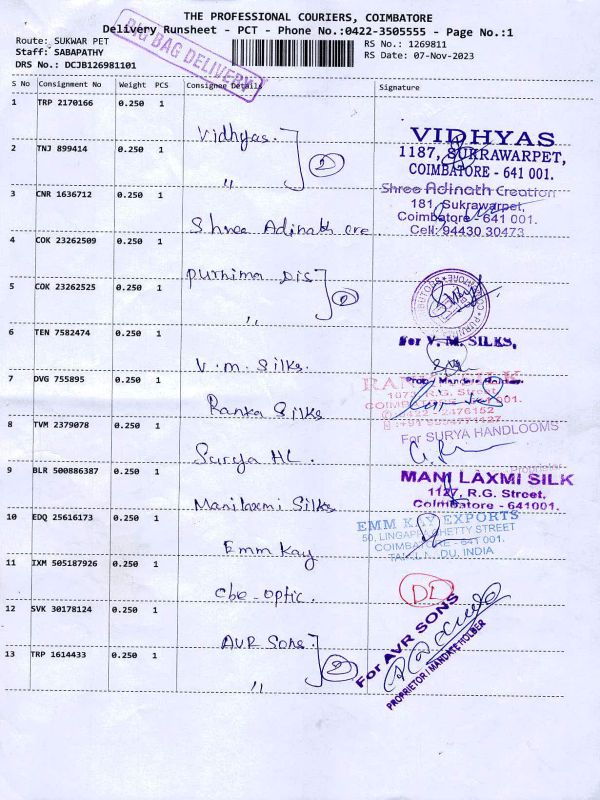 THE PROFESSIONAL COURIERS, COIMBATORE
Delivery Runsheet - PCT - Phone No.:0422-3505555 - Page No.:1
BIG BAG DELIVERY
Route: SUKWAR PET
Staff: SABAPATHY
DRS No.: DCJB126981101
RS No.: 1269811
RS Date: 07-Nov-2023
S No Consignment No Weight PCS Consignee Details Signature
1 TRP 2170166 0.250 1 Vidhyas.
2 TNJ 899414 0.250 1 " 2
VIDHYAS
1187, SUKRAWARPET,
COIMBATORE - 641 001.
3 CNR 1636712 0.250 1 Shree Adinath cre.
Shree Adinath Creation
181, Sukrawarpet,
Coimbatore - 641 001.
Cell: 94430 30473
4 COK 23262509 0.250 1 purnima Dis
5 COK 23262525 0.250 1 "
6 TEN 7582474 0.250 1 V.m. Silks.
For V. M. SILKS,
Prop / Mandate Holder
7 DVG 755895 0.250 1 Ranka Silks
R.G. Street,
8 TVM 2379078 0.250 1 Surya HL.
For SURYA HANDLOOMS
Proprietor
9 BLR 500886387 0.250 1 Manilaxmi Silks
MANI LAXMI SILK
1127, R.G. Street,
Coimbatore - 641001.
10 EDQ 25616173 0.250 1 Emm Kay
EMM KAY EXPORTS
50, LINGAPPA CHETTY STREET
COIMBATORE - 641 001.
TAMIL NADU, INDIA
11 IXM 505187926 0.250 1 Cbe-optic.
DL
12 SVK 30178124 0.250 1 AVR Sons.
13 TRP 1614433 0.250 1 " 2
For AVR SONS
PROPRIETOR / MANDATE HOLDER